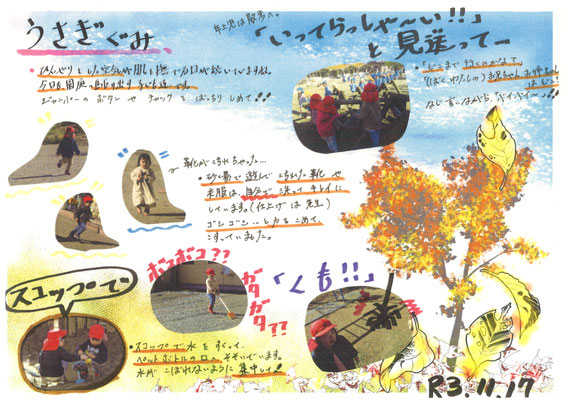 うさぎぐみ
年上児は散歩へ。
「いってらっしゃ〜い!!」
と見送って―
ひんやりとした空気が肌を撫でる日が続いていますね。
今日も園庭へ飛び出す子ども達です。
ジャンパーのボタンやチャックをばっちりしめて!!
「どこまで行くのかなぁ?
(ぼく、わたしの)お兄ちゃん、お姉ちゃん
など言いながら、"バイバイー"
靴がよごれちゃった…
・砂場で遊んでよごれた靴や
衣服は、自分で洗ってキレイに
しています。(仕上げは先生)
ゴシゴシ…と力をこめて、
こすっていました。
ボコボコ??
ガタガタ??
「くも!!」
スコップで
・スコップで水をすくって、
ペットボトルの口へそそいでいます。
水がこぼれないように集中しています!
R3.11.17